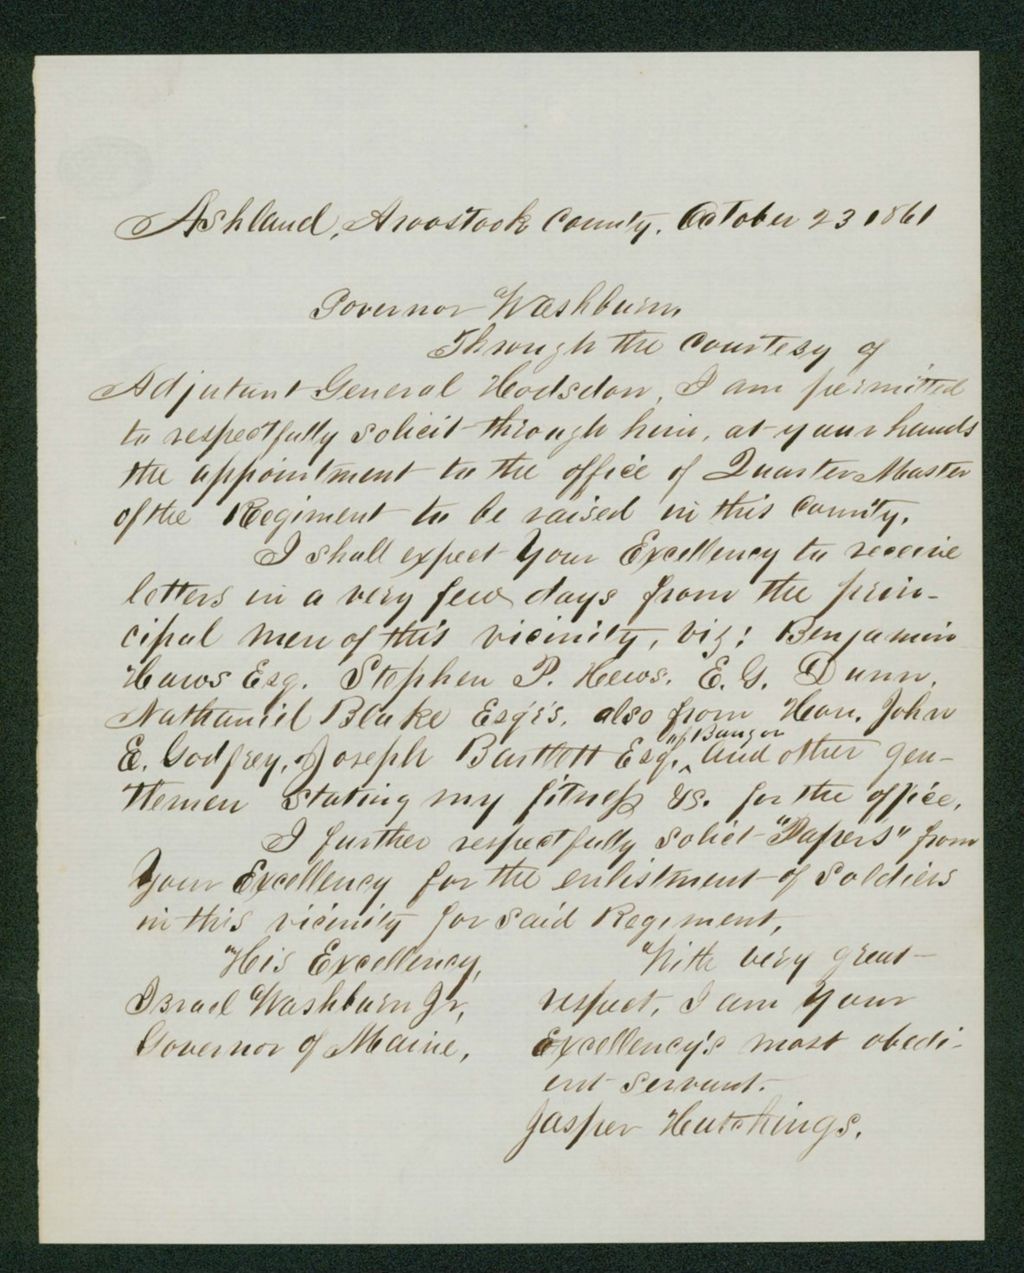 Ashland, Aroostook County. October 23 1861
Governor Washburn,
Through the courtesy of
Adjutant General Hodsdon, I am permitted
to respectfully solicit through him, at your hands
the appointment to the office of Quarter Master
of the Regiment to be raised in this county.
I shall expect Your Excellency to receive
letters in a very few days from the prin-
cipal men of this vicinity, viz: Benjamin
Haws Esq. Stephen P. Hews. E. G. Dunn,
Nathaniel Blake Esq's. also from Hon. John
E. Godfrey, Joseph Bartlett Esq. of Bangor and other gen-
tlemen stating my fitness &c. for the office.
I further respectfully solicit "Papers" from
Your Excellency for the enlistment of soldiers
in this vicinity for said Regiment,
His Excellency,
Israel Washburn Jr,
Governor of Maine,
With very great
respect, I am Your
Excellency's most obedi-
ent servant.
Jasper Hutchings.